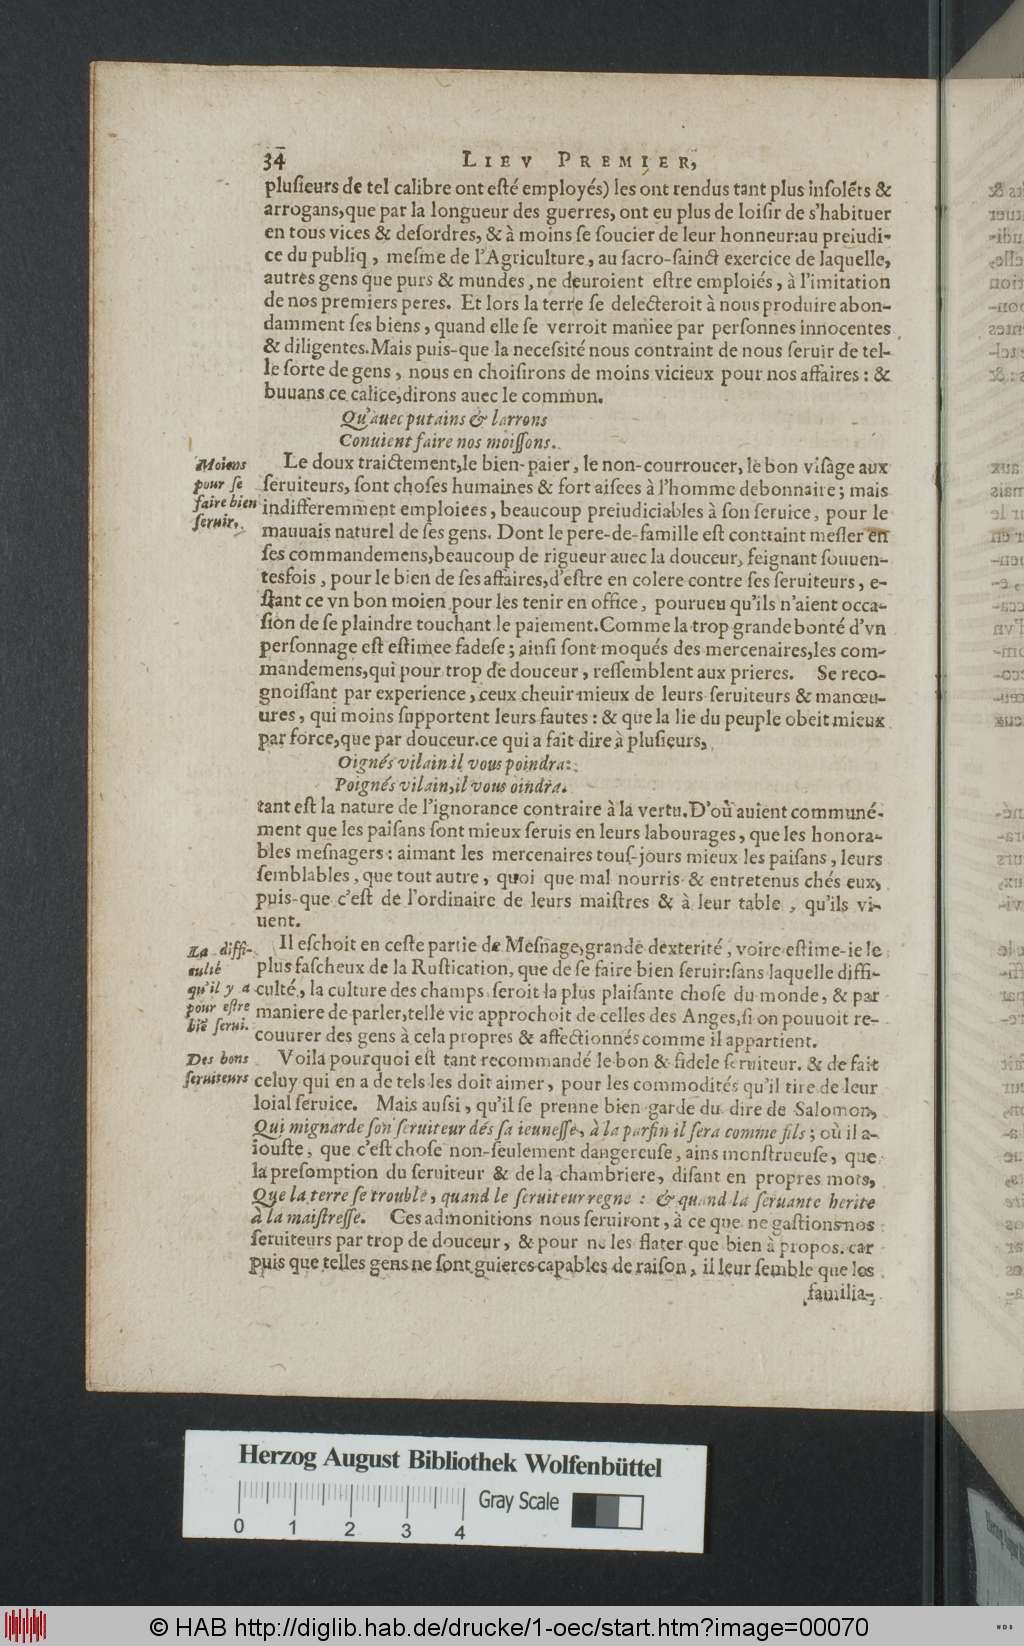 34
LIEV PREMIER,
pluſieurs de tel calibre ont eſté employés) les ont rendus tant plus inſolẽts &
arrogans,que par la longueur des guerres, ont eu plus de loiſir de s'habituer
en tous vices & deſordres, & à moins ſe ſoucier de leur honneur:au preiudi-
ce du publiq , meſme de l'Agriculture, au ſacro-ſainct exercice de laquelle,
autres gens que purs & mundes , ne deuroient eſtre emploiés , à l'imitation
de nos premiers peres. Et lors la terre ſe delecteroit à nous produire abon-
damment ſes biens , quand elle ſe verroit maniee par perſonnes innocentes
& diligentes.Mais puis-que la neceſsité nous contraint de nous ſeruir de tel-
le ſorte de gens , nous en choiſirons de moins vicieux pour nos affaires : &
buuans ce calice,dirons auec le commun.
Qu'auec putains & larrons
Conuient faire nos moiſſons.
Moiens
pour ſe
faire bien
ſeruir.
Le doux traictement,le bien-paier , le non-courroucer, le bon viſage aux
ſeruiteurs, ſont choſes humaines & fort aiſees à l'homme debonnaire ; mais
indifferemment emploiees , beaucoup preiudiciables à ſon ſeruice , pour le
mauuais naturel de ſes gens. Dont le pere-de-famille eſt contraint meſler en
ſes commandemens,beaucoup de rigueur auec la douceur, feignant ſouuen-
tesfois , pour le bien de ſes affaires,d'eſtre en colere contre ſes ſeruiteurs , e-
ſtant ce vn bon moien pour les tenir en office , pourueu qu'ils n'aient occa-
ſion de ſe plaindre touchant le paiement.Comme la trop grande bonté d'vn
perſonnage eſt eſtimee fadeſe ; ainſi ſont moqués des mercenaires,les com-
mandemens,qui pour trop de douceur , reſſemblent aux prieres. Se reco-
gnoiſſant par experience , ceux cheuir mieux de leurs ſeruiteurs & manœu-
ures , qui moins ſupportent leurs fautes : & que la lie du peuple obeit mieux
par force,que par douceur.ce qui a fait dire à pluſieurs,
Oignés vilain il vous poindra:
Poignés vilain,il vous oindra.
tant eſt la nature de l'ignorance contraire à la vertu.D'où auient communé-
ment que les paiſans ſont mieux ſeruis en leurs labourages , que les honora-
bles meſnagers : aimant les mercenaires touſ-jours mieux les paiſans , leurs
ſemblables , que tout autre , quoi que mal nourris & entretenus chés eux,
puis-que c'eſt de l'ordinaire de leurs maiſtres & à leur table , qu'ils vi-
uent.
La diffi-
culté
qu'il y a
pour eſtre
biẽ ſerui.
Il eſchoit en ceſte partie de Meſnage,grande dexterité , voire eſtime-ie le
plus faſcheux de la Ruſtication, que de ſe faire bien ſeruir:ſans laquelle diffi-
culté , la culture des champs ſeroit la plus plaiſante choſe du monde , & par
maniere de parler,telle vie approchoit de celles des Anges,ſi on pouuoit re-
couurer des gens à cela propres & affectionnés comme il appartient.
Des bons
ſeruiteurs
Voila pourquoi eſt tant recommandé le bon & fidele ſeruiteur. & de fait
celuy qui en a de tels les doit aimer , pour les commodités qu'il tire de leur
loial ſeruice. Mais auſsi , qu'il ſe prenne bien garde du dire de Salomon,
Qui mignarde ſon ſeruiteur dés ſa ieuneſſe, à la parfin il ſera comme fils ; où il a-
iouſte , que c'eſt choſe non-ſeulement dangereuſe, ains monſtrueuſe , que
la preſomption du ſeruiteur & de la chambriere , diſant en propres mots,
Que la terre ſe trouble, quand le ſeruiteur regne : & quand la ſeruante herite
à la maiſtreſſe. Ces admonitions nous ſeruiront , à ce que ne gaſtions nos
ſeruiteurs par trop de douceur , & pour ne les flater que bien à propos. car
puis que telles gens ne ſont guieres capables de raiſon , il leur ſemble que les
familia-
Herzog August Bibliothek Wolfenbüttel
Gray Scale
0 1 2 3 4
© HAB http://diglib.hab.de/drucke/1-oec/start.htm?image=00070